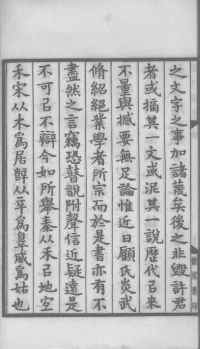 之文字之事加諸蔑矣後之非毀許君
者或摘其一文或泥其一說歷代㠯來
不量與撼要無足論惟近日顧氏炎武
脩紹絕業學者所宗而於是書亦有不
盡然之言竊恐瞽說附聲信近疑遠是
不可㠯不辯今如所舉秦从禾㠯地宐
禾宋从木爲居辥从辛爲辠威爲姑也